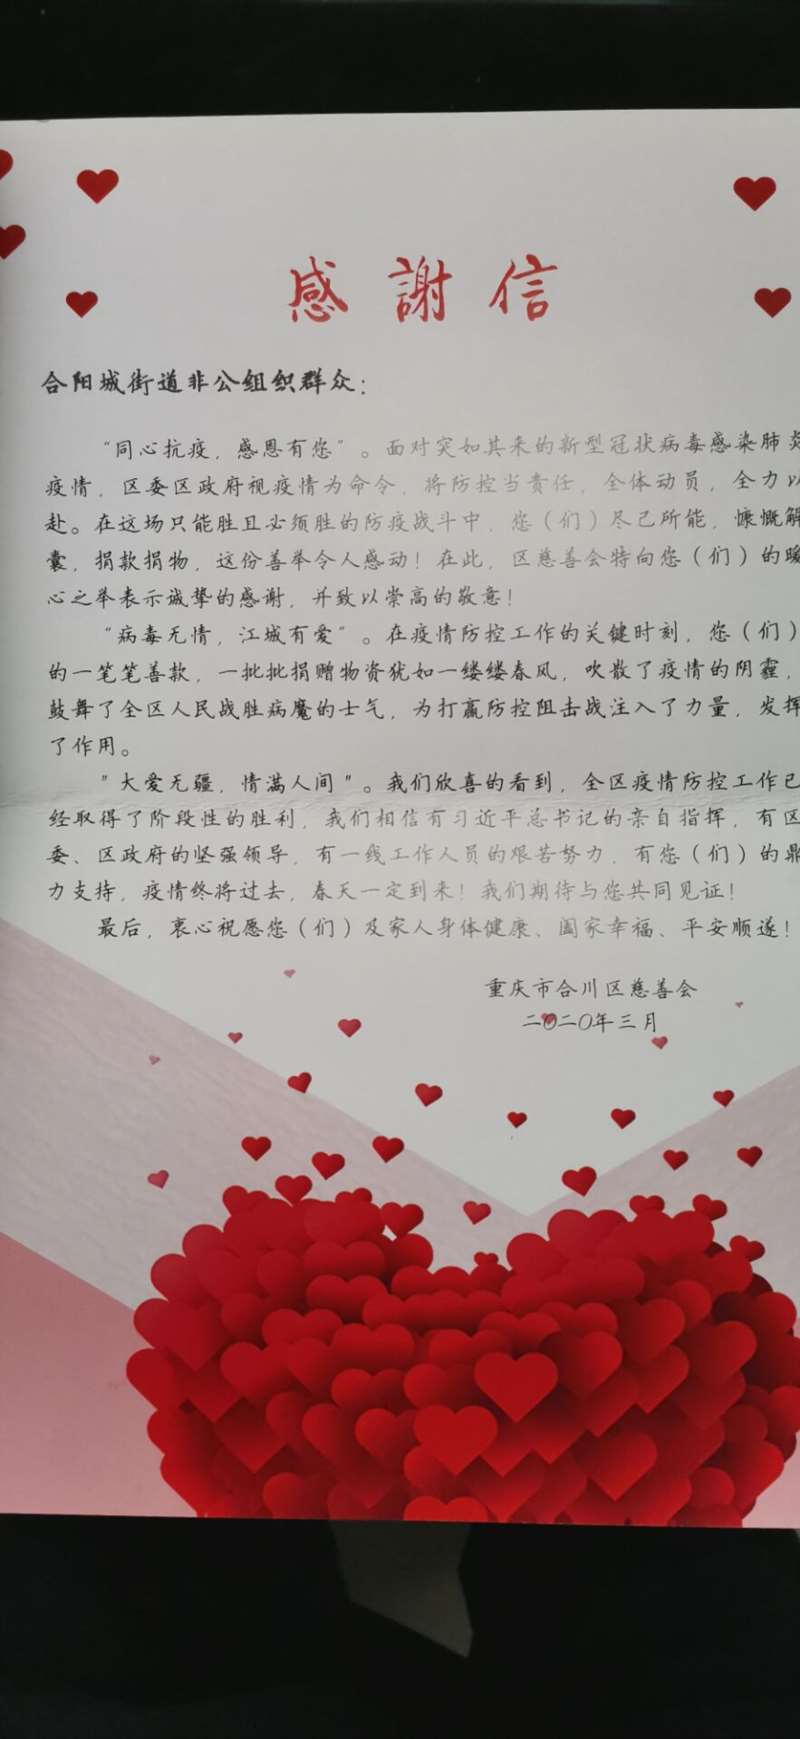 感謝信
合阳城街道非公组织群众：
“同心抗疫，感恩有您”。面对突如其来的新型冠状病毒感染肺炎
疫情，区委区政府视疫情为命令，将防控当责任，全体动员，全力以
赴。在这场只能胜且必须胜的防疫战斗中，您（们）尽己所能，慷慨解
囊，捐款捐物，这份善举令人感动！在此，区慈善会特向您（们）的暖
心之举表示诚挚的感谢，并致以崇高的敬意！
“病毒无情，江城有爱”。在疫情防控工作的关键时刻，您（们）
的一笔笔善款，一批批捐赠物资犹如一缕缕春风，吹散了疫情的阴霾，
鼓舞了全区人民战胜病魔的士气，为打赢防控阻击战注入了力量，发挥
了作用。
"大爱无疆，情满人间"。我们欣喜的看到，全区疫情防控工作已
经取得了阶段性的胜利，我们相信有习近平总书记的亲自指挥，有区
委、区政府的坚强领导，有一线工作人员的艰苦努力，有您（们）的鼎
力支持，疫情终将过去，春天一定到来！我们期待与您共同见证！
最后，衷心祝愿您（们）及家人身体健康、阖家幸福、平安顺遂！
重庆市合川区慈善会
二〇二〇年三月